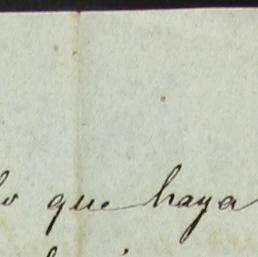 lo que haya